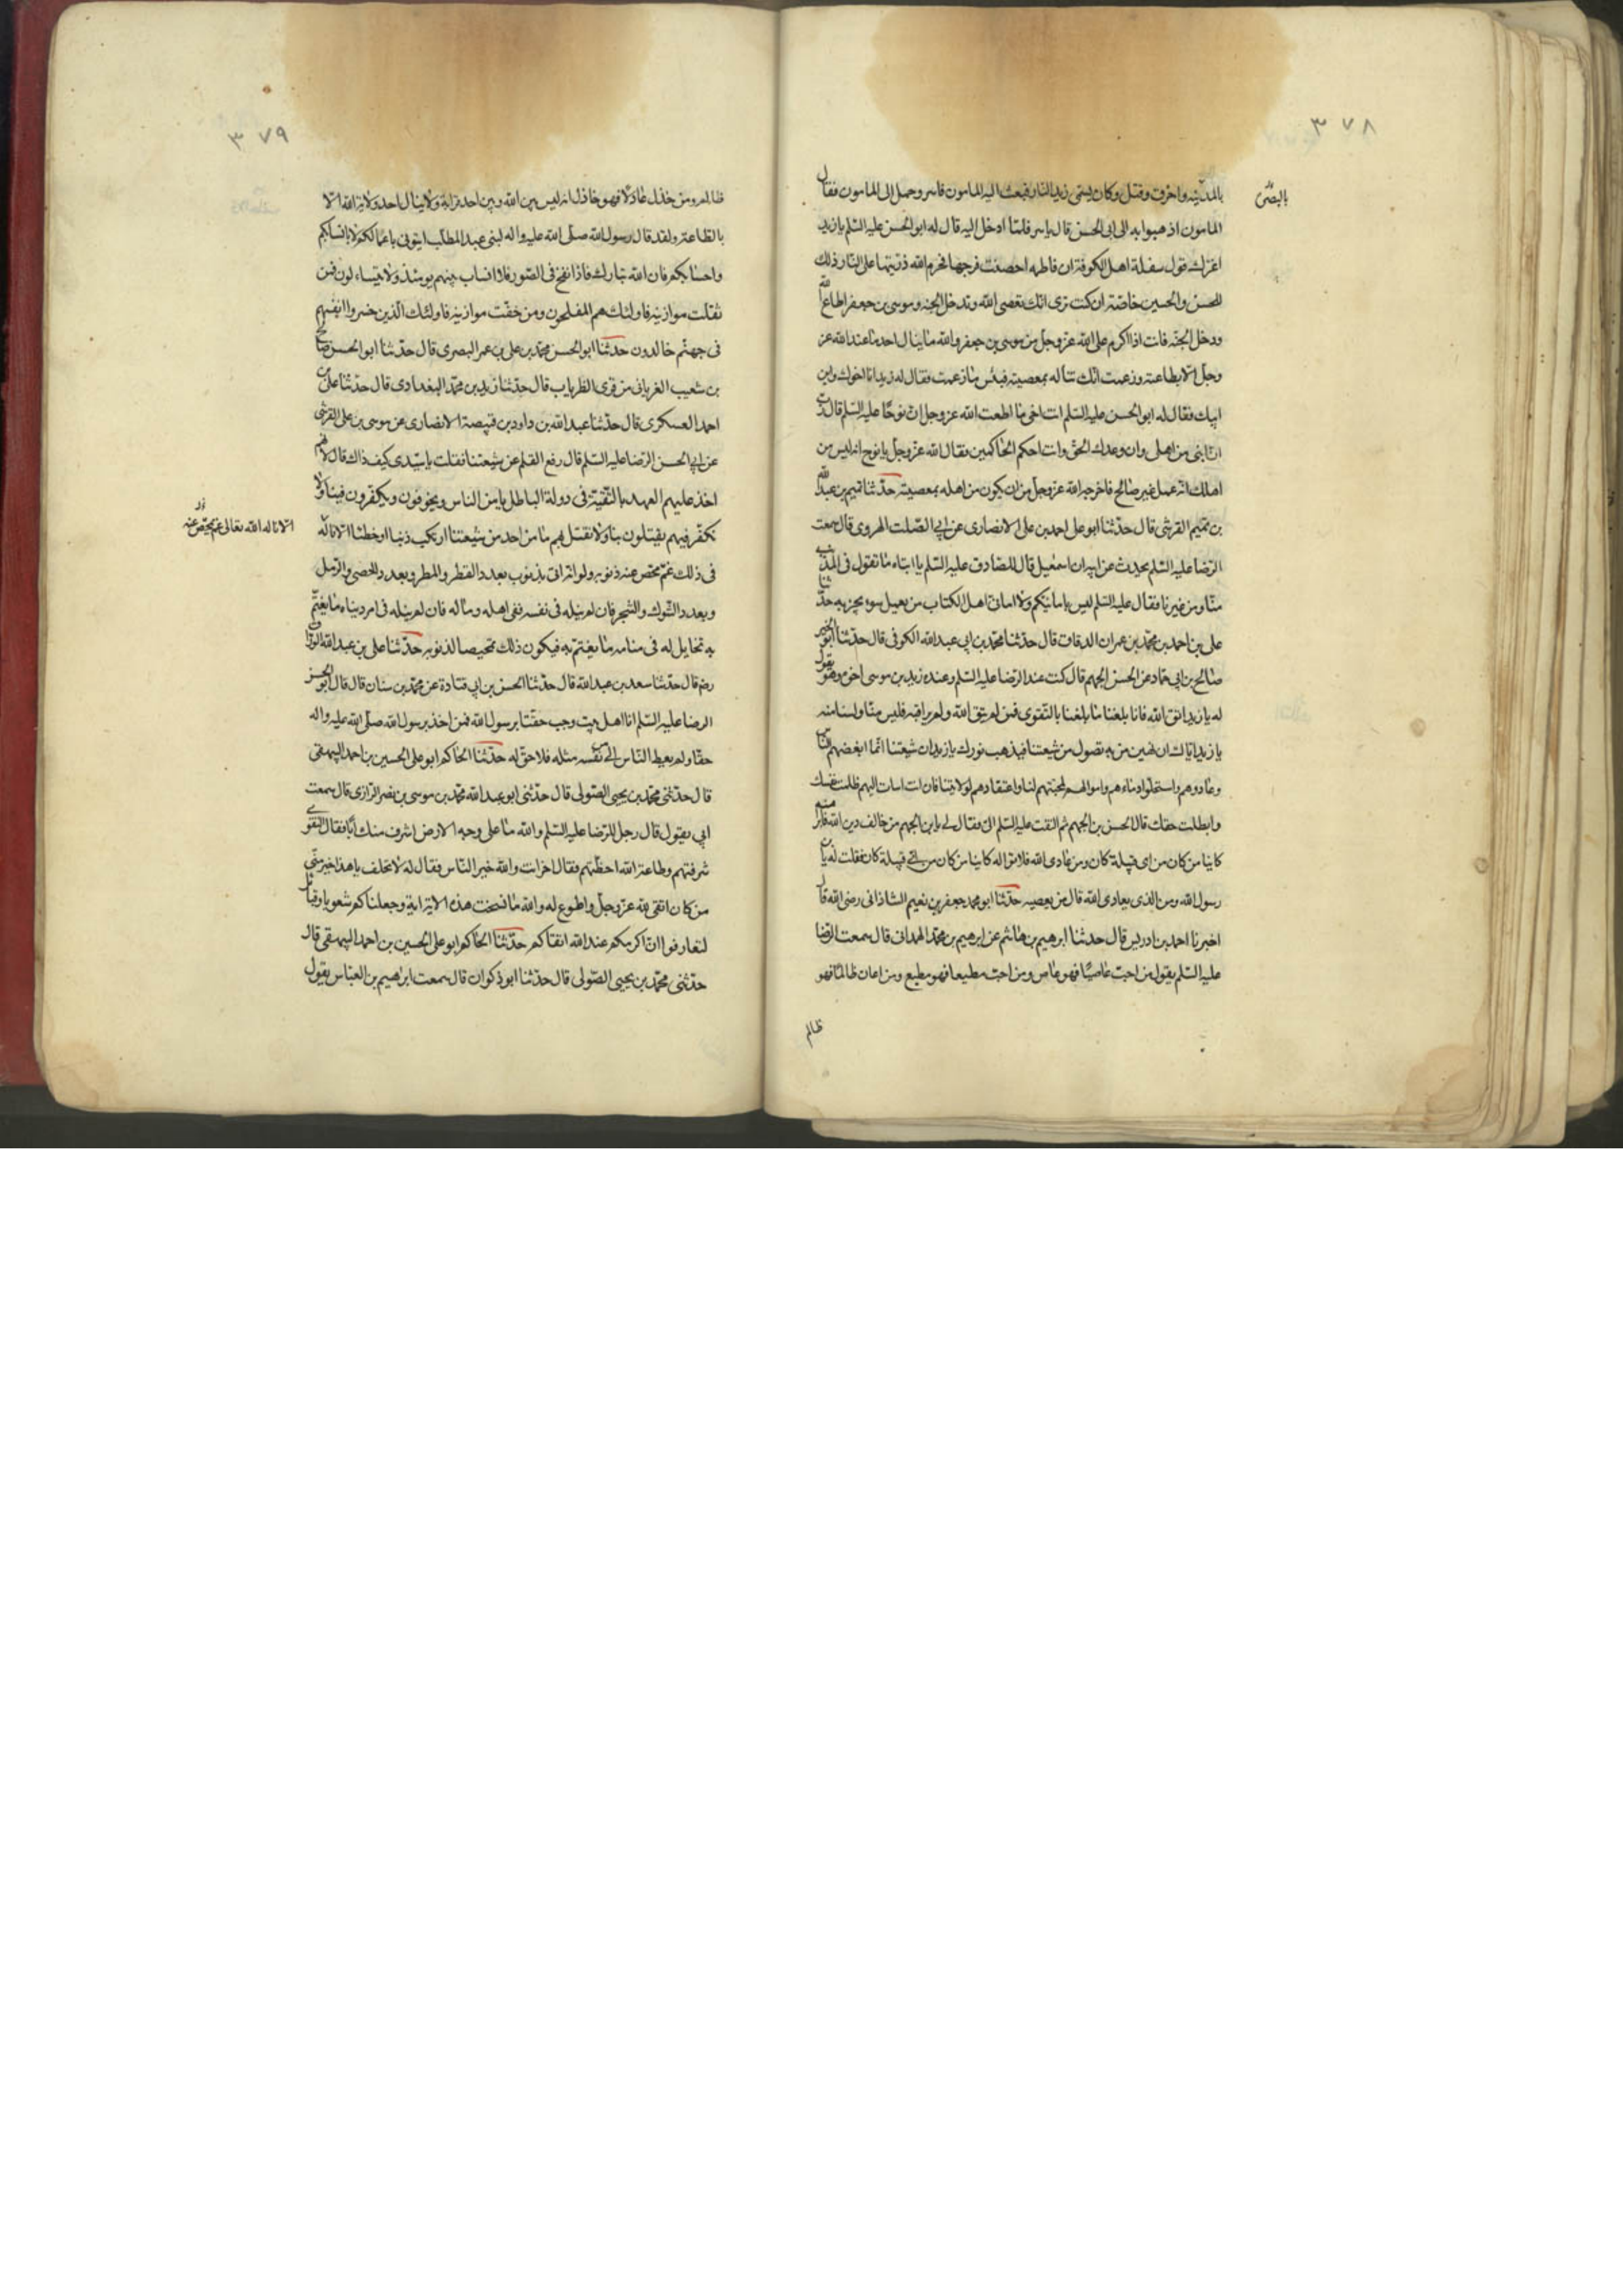 ٣٧٨
بالمدينه واحرق وقتل وكان يسمى زيد النار فبعث اليه المامون فاسر وحمل الى المامون فقال
المامون اذهبوا به الى ابى الحسن قال ياسر فلما ادخل اليه قال له ابو الحسن عليه السلم يا زيد
اغرك قول سفلة اهل الكوفة ان فاطمه احصنت فرجها فحرم الله ذريتها على النار ذلك
للحسن والحسين خاصة ان كنت ترى انك تعصى الله وتدخل الجنه وموسى بن جعفر اطاع الله
ودخل الجنه فانت اذا اكرم على الله عز وجل من موسى بن جعفر والله ما ينال احد ما عند الله عز
وجل الا بطاعته وزعمت انك تناله بمعصيته فبئس ما زعمت فقال له زيد انا اخوك وابن
ابيك فقال له ابو الحسن عليه السلم انت اخى ما اطعت الله عز وجل ان نوحا عليه السلم قال رب
ان ابنى من اهلى وان وعدك الحق وانت احكم الحاكمين فقال الله عز وجل يا نوح انه ليس من
اهلك انه عمل غير صالح فاخرجه الله عز وجل من ان يكون من اهله بمعصيته حدثنا تميم بن عبد الله
بن تميم القرشى قال حدثنا ابو على احمد بن على الانصارى عن ابى الصلت الهروى قال سمعت
الرضا عليه السلم يحدث عن ابيه ان اسمعيل قال للصادق عليه السلم يا ابتاه ما تقول فى المذنب
منا ومن غيرنا فقال عليه السلم ليس بامانيكم ولا امانى اهل الكتاب من يعمل سوء يجز به حدثنا
على بن احمد بن محمد بن عمران الدقاق قال حدثنا محمد بن ابى عبد الله الكوفى قال حدثنا ابو الخير
صالح بن ابى حماد عن الحسن الجهم قال كنت عند الرضا عليه السلم وعنده زيد بن موسى اخوه وهو يقول
له يا زيد اتق الله فانا بلغنا ما بلغنا بالتقوى فمن لم يتق الله ولم يراقبه فليس منا ولسنا منه
يا زيد اياك ان تهين من به تصول من شيعتنا فيذهب نورك يا زيد ان شيعتنا انما ابغضهم الناس
وعادوهم واستحلوا دماءهم واموالهم لمحبتهم لنا واعتقادهم لولايتنا فان انت اسات اليهم ظلمت نفسك
وابطلت حقك قال الحسن بن الجهم ثم التفت عليه السلم الى فقال لى يا بن الجهم من خالف دين الله فابرا منه
كاينا من كان من اى قبيلة كان ومن عادى الله فلا تواله كاينا من كان من اى قبيلة كان فقلت له يا بن
رسول الله ومن الذى يعادى الله قال من يعصيه حدثنا ابو محمد جعفر بن نعيم الشاذانى رضى الله قال
اخبرنا احمد بن ادريس قال حدثنا ابرهيم بن هاشم عن ابرهيم بن محمد الهمدانى قال سمعت الرضا
عليه السلم يقول من احب عاصيا فهو عاص ومن احب مطيعا فهو مطيع ومن اعان ظالما فهو
ظالم
٣٧٩
ظالم ومن خذل عادلا فهو خاذل انه ليس بين الله وبين احد قرابة ولا ينال احد ولاية الله الا
بالطاعة ولقد قال رسول الله صلى الله عليه واله لبنى عبد المطلب ايتونى باعمالكم لا بانسابكم
واحسابكم فان الله تبارك فاذا نفخ فى الصور فلا انساب بينهم يومئذ ولا يتساءلون فمن
ثقلت موازينه فاولئك هم المفلحون ومن خفت موازينه فاولئك الذين خسروا انفسهم
فى جهنم خالدون حدثنا ابو الحسن محمد بن على بن عمر البصرى قال حدثنا ابو الحسن صالح
بن شعيب الغريانى من قرى الظرياب قال حدثنا زيد بن محمد البغدادى قال حدثنا على بن
احمد العسكرى قال حدثنا عبد الله بن داود بن قبيصة الانصارى عن موسى بن على القرشى
عن ابى الحسن الرضا عليه السلم قال رفع القلم عن شيعتنا فقلت يا سيدى كيف ذاك قال لانهم
اخذ عليهم العهد بالتقية فى دولة الباطل يامن الناس ويخوفون ويكفرون فينا ولا
نكفر فيهم يقتلون بنا ولا نقتل بهم ما من احد من شيعتنا ارتكب ذنبا او خطئا الا ناله
فى ذلك غم محص عنه ذنوبه ولو انه اتى بذنوب بعدد القطر والمطر وبعدد الحصى والرمل
وبعدد الشوك والشجر فان لم ينله فى نفسه ففى اهله وماله فان لم ينله فى امر دنياه ما يغتم
به تخايل له فى منامه ما يغتم به فيكون ذلك تمحيصا لذنوبه حدثنا على بن عبد الله الوراق
رضه قال حدثنا سعد بن عبد الله قال حدثنا الحسن بن ابى قتادة عن محمد بن سنان قال قال ابو الحسن
الرضا عليه السلم انا اهل بيت وجب حقنا برسول الله فمن اخذ برسول الله صلى الله عليه واله
حقا ولم يعط الناس من نفسه مثله فلا حق له حدثنا الحاكم ابو على الحسين بن احمد البيهقى
قال حدثنى محمد بن يحيى الصولى قال حدثنى ابو عبد الله محمد بن موسى بن نصر الرازى قال سمعت
ابى يقول قال رجل للرضا عليه السلم والله ما على وجه الارض اشرف منك ابا فقال التقوى
شرفتهم وطاعة الله احظتهم فقال اخر انت والله خير الناس فقال له لا تحلف يا هذا خير منى
من كان اتقى لله عز وجل واطوع له والله ما نسخت هذه الاية اية وجعلناكم شعوبا وقبائل
لتعارفوا ان اكرمكم عند الله اتقاكم حدثنا الحاكم ابو على الحسين بن احمد البيهقى قال
حدثنى محمد بن يحيى الصولى قال حدثنا ابو ذكوان قال سمعت ابرهيم بن العباس يقول
الا ناله الله تعالى غم محص عنه